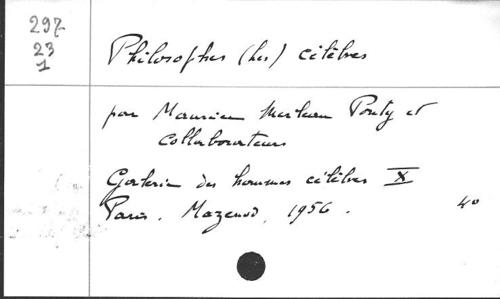 297
23
1
Philosophes (Les) célèbres
par Maurice Merleau Ponty et
collaborateurs
Galerie des hommes célèbres X
Paris. Mazenod, 1956.
4°